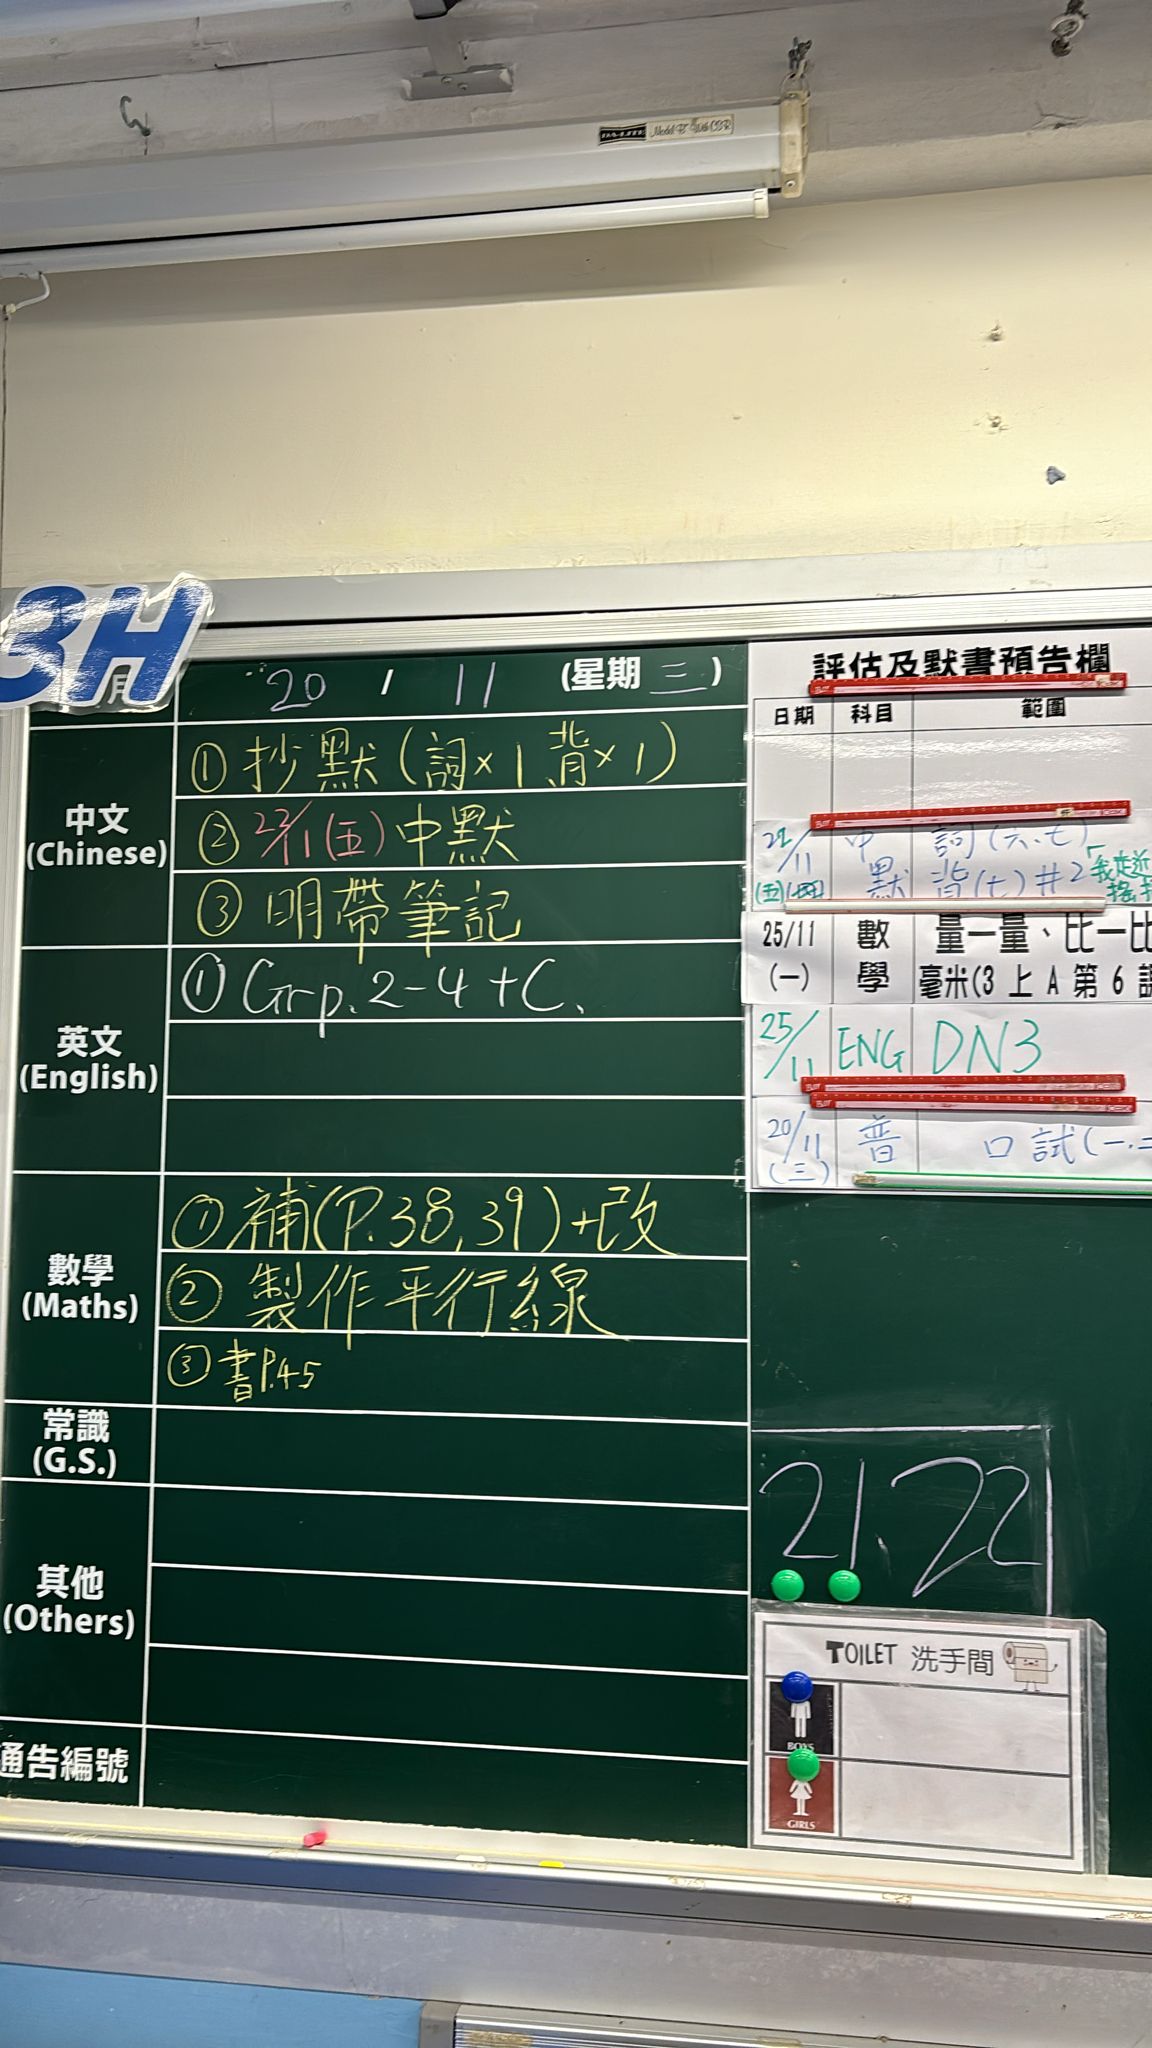 Model B With CSR
3H
月
20 / 11 (星期三)
中文
(Chinese)
① 抄默(詞×1 背×1)
② 22/11(五)中默
③ 明帶筆記
英文
(English)
① Grp. 2-4 + C.
數學
(Maths)
① 補(P.38,39)+改
② 製作平行線
③ 書P.45
常識
(G.S.)
其他
(Others)
通告編號
評估及默書預告欄
日期 科目 範圍
22/11 (五) 中默 詞(六、七)
背(七)#2「我走近
25/11 (一) 數學 量一量、比一比
毫米(3上A第6課
25/11 ENG DN3
20/11 (三) 普 口試(一.二
21. 22
TOILET 洗手間
BOYS
GIRLS